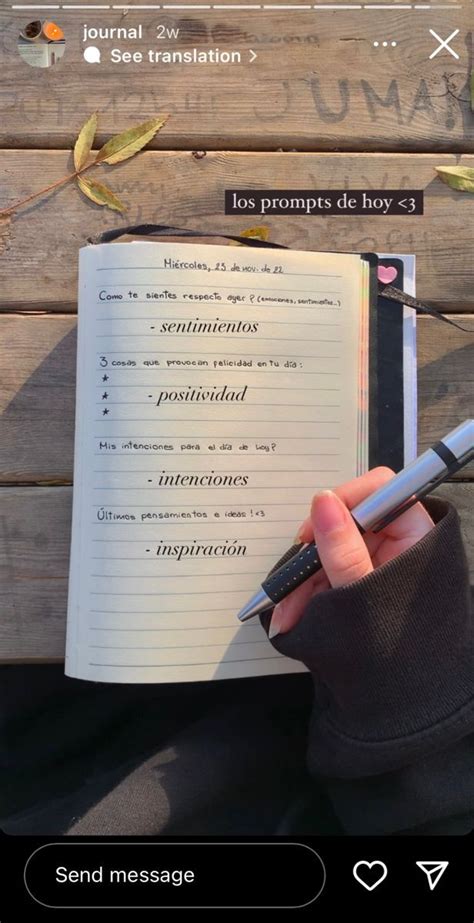 journal 2w
See translation >
JUMA
los prompts de hoy <3
Miércoles, 23 de nov. de 22
Como te sientes respecto ayer? (emociones, sentimientos...)
- sentimientos
3 cosas que provocan felicidad en tu día:
- positividad
Mis intenciones para el día de hoy?
- intenciones
Últimos pensamientos e ideas! <3
- inspiración
Send message